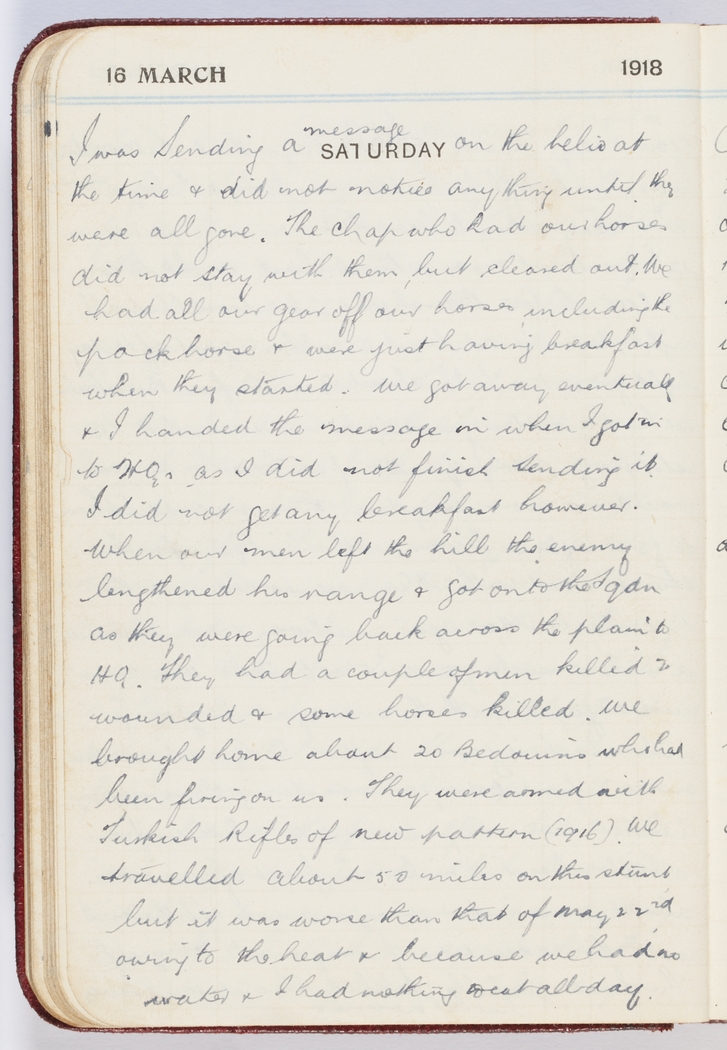 16 MARCH 1918
message
I was Sending a SATURDAY on the helio at
the time & did not notice anything until they
were all gone. The chap who had our horses
did not stay with them, but cleared out. We
had all our gear off our horses including the
packhorse & were just having breakfast
when they started. We got away eventually
& I handed the message in when I got in
to HQrs as I did not finish sending it.
I did not get any breakfast however.
When our men left the hill the enemy
lengthened his range & got onto the Sqdn
as they were going back across the plain to
HQ. They had a couple of men killed &
wounded & some horses killed. We
brought home about 20 Bedouins who had
been firing on us. They were armed with
Turkish Rifles of new pattern (1916). We
travelled about 50 miles on this stunt
but it was worse than that of May 22nd
owing to the heat & because we had no
water & I had nothing to eat all day.